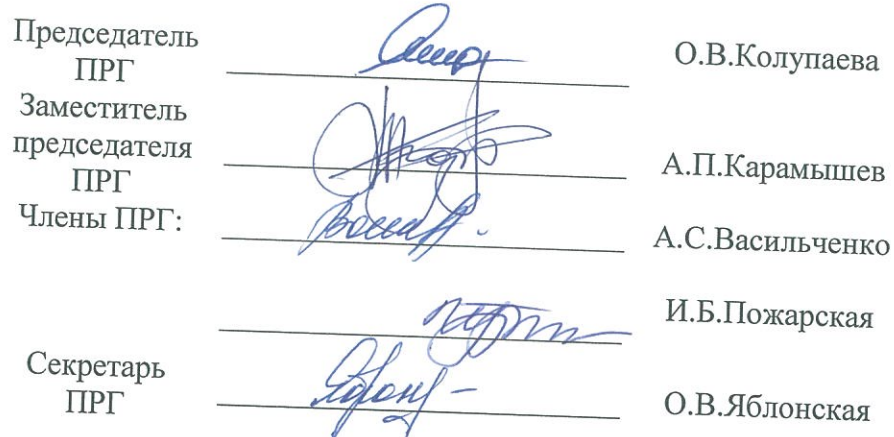 Председатель
ПРГ
О.В.Колупаева
Заместитель
председателя
ПРГ
А.П.Карамышев
Члены ПРГ:
А.С.Васильченко
И.Б.Пожарская
Секретарь
ПРГ
О.В.Яблонская